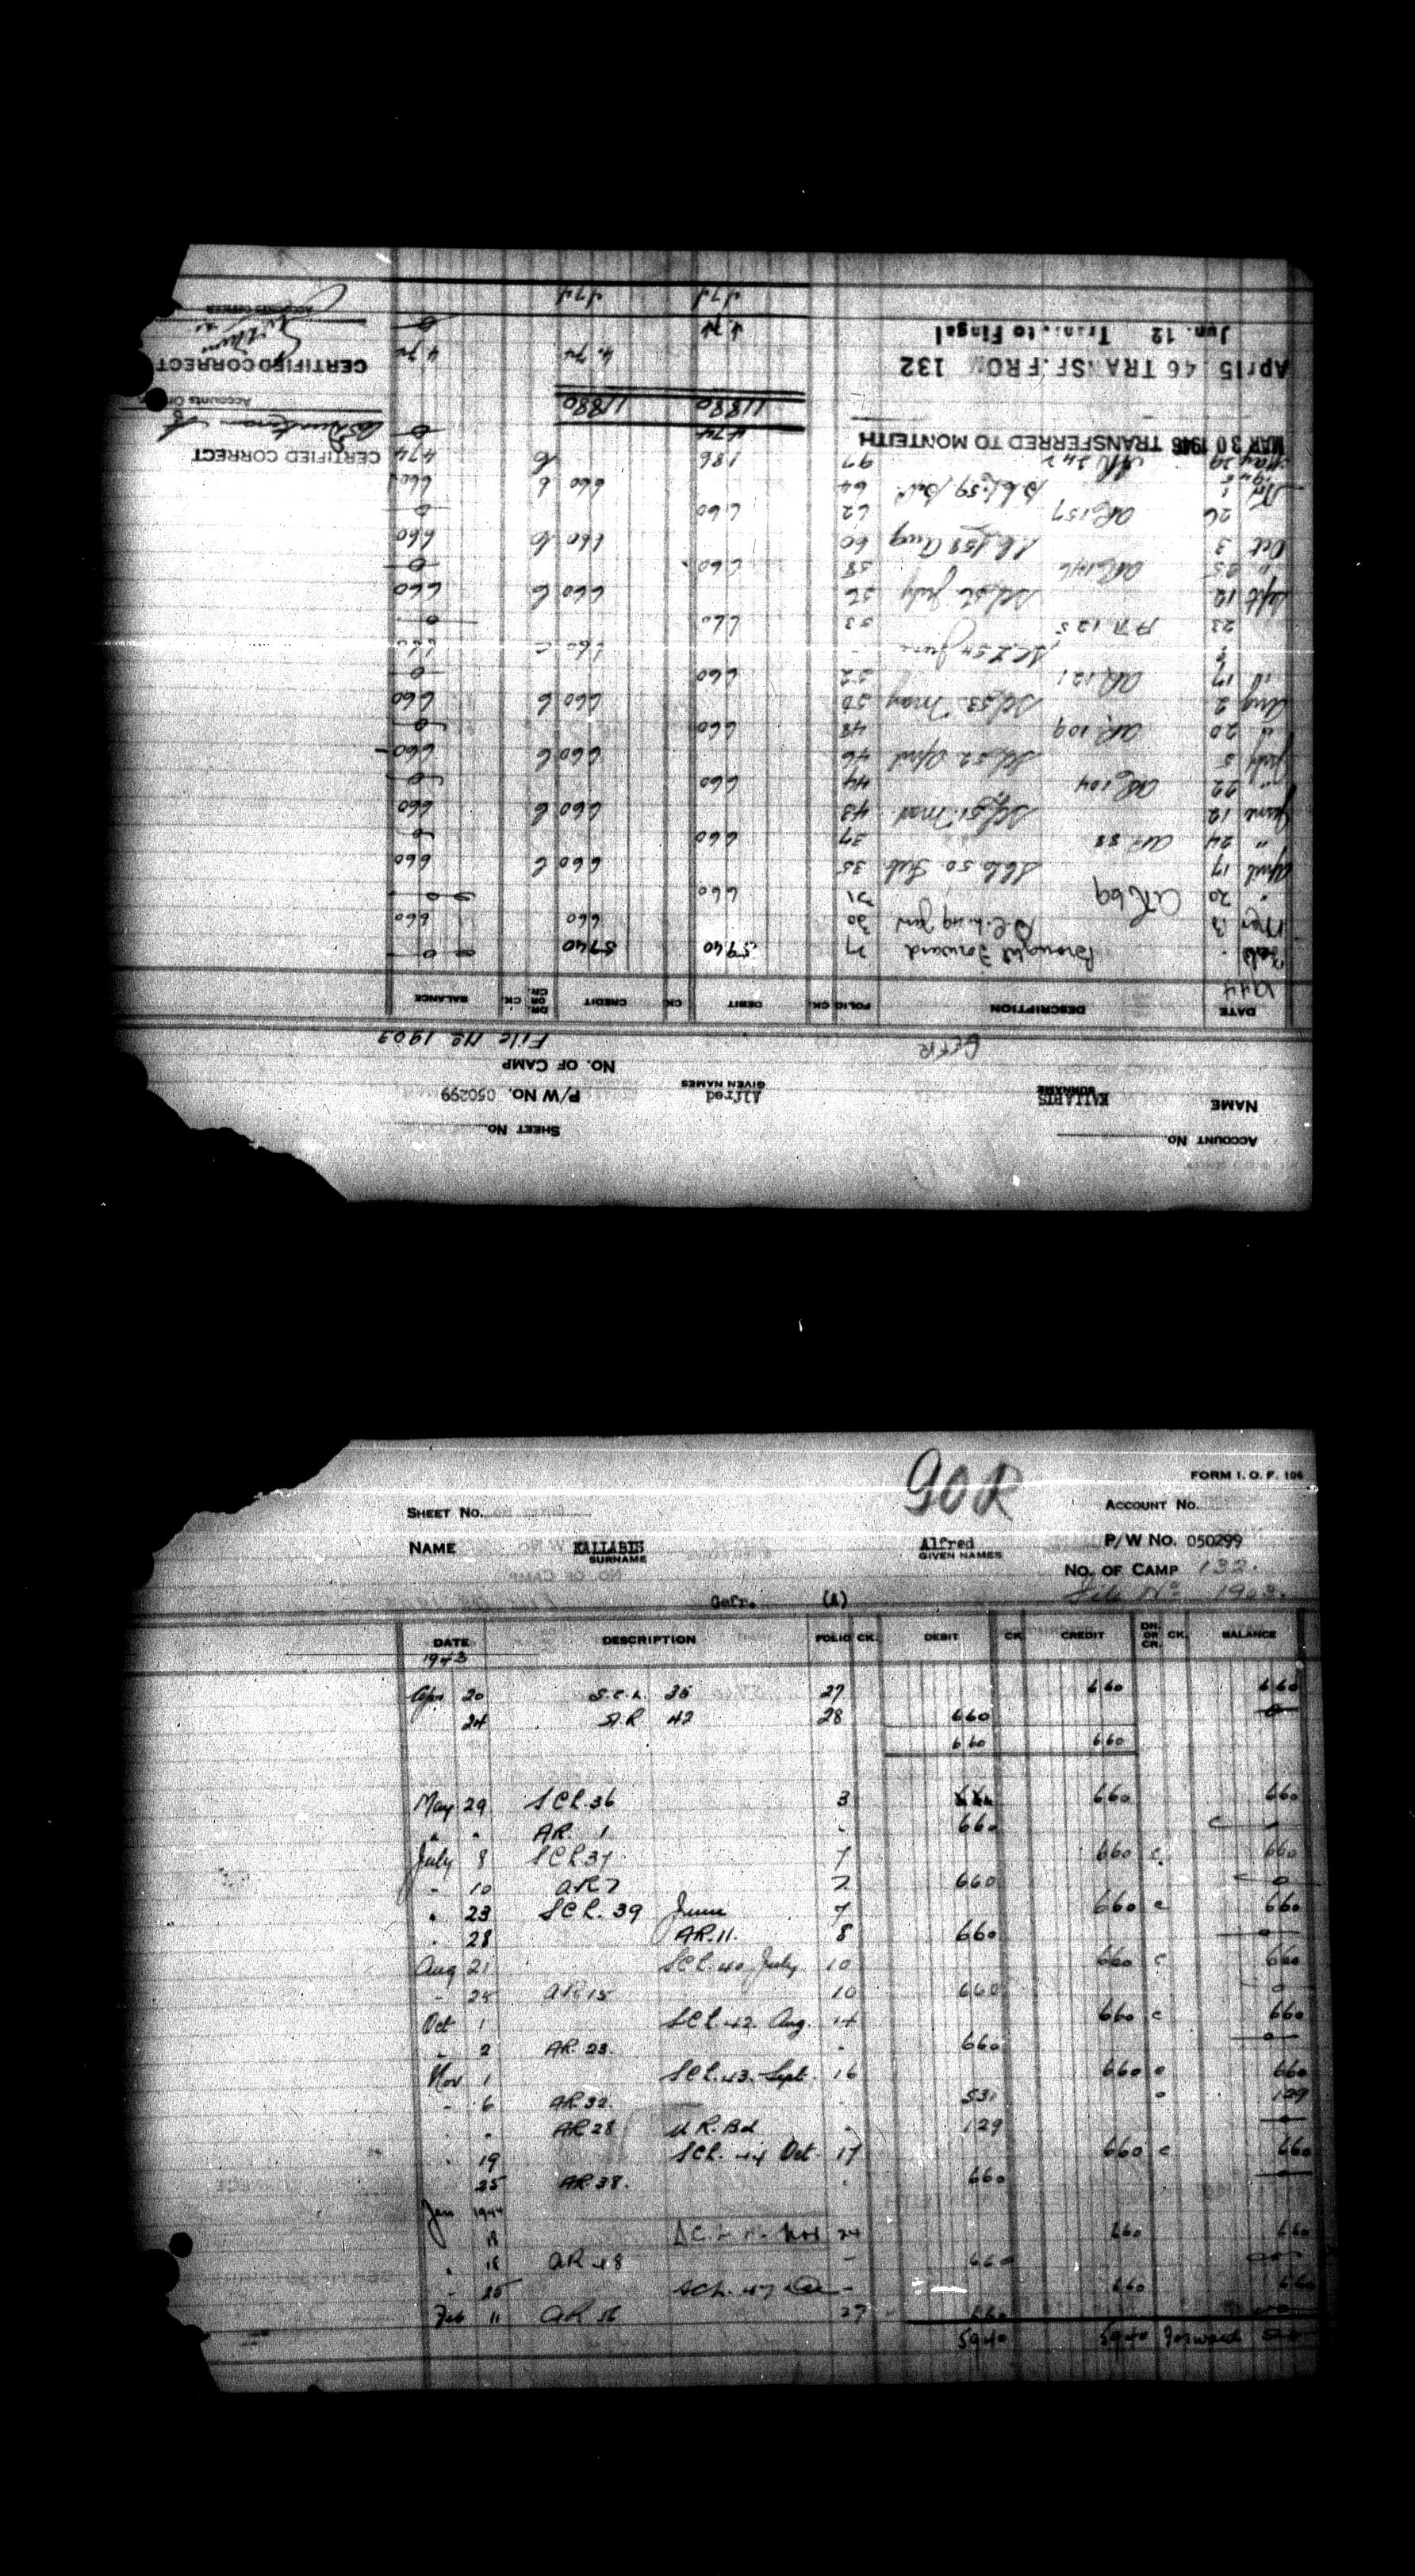 CERTIFIED CORRECT
Accounts Officer
Jun. 12 Trans. to Fingal
4.74 4.74
Apr 15. 46 TRANSF. FROM 132 4.74 4 74
CERTIFIED CORRECT
11880 11880
474 0
MAR 30 1946 TRANSFERRED TO MONTEITH
May 29 97 186 474
1945
1 59 Oct. 64 660 660
26 AR 157 62 660 0
Oct 3 58 Aug 60 660 660
" 25 AR 146 58 660 0
Sept 12 56 July 56 660 660
23 AR 125 53 660 0
54 June 660 660
" 17 AR 121 52 660 0
Aug 2 SCL 53 May 50 660 660
" 20 AR 109 48 660 0
July 5 SCL 52 April 46 660 660
" 22 AR 104 44 660 0
June 12 SCL 51 Mar 43 660 660
" 24 AR 88 37 660 0
April 17 50 Feb 35 660 660
" 20 AR 69 31 660 0
Mar 13 49 Jan 30 660 660
Feb Brought Forward 27 5940 5940 0
1944
DATE DESCRIPTION FOLIO CK. DEBIT CK. CREDIT DR. OR CR. CK. BALANCE
GEFR File No 1903
NO. OF CAMP
NAME KALLABIS SURNAME Alfred GIVEN NAMES P/W No. 050299
ACCOUNT No. SHEET No.
90R
FORM I. O. F. 106
SHEET No. ACCOUNT No.
NAME KALLABIS SURNAME Alfred GIVEN NAMES P/W No. 050299
NO. OF CAMP 132.
Gefr. (A) File No 1903.
DATE DESCRIPTION FOLIO CK. DEBIT CK. CREDIT DR. OR CR. CK. BALANCE
1943
Apr 20 S.C.L. 35 27 660 660
24 A.R 42 28 660 0
660 660
May 29 SCL 36 3 660 660
" " AR. 1 - 660 0
July 8 SCL 37 7 660 c. 660
" 10 AR 7 7 660 0
" 23 SCL. 39 June 7 660 c 660
" 28 AR. 11. 8 660 0
Aug 21 SCL. 40 July 10 660 c 660
" 25 AR 15 10 660 0
Oct 1 SCL. 42 Aug. 14 660 c 660
" 2 AR. 23. - 660 0
Nov 1 SCL. 43. Sept. 16 660 c 660
" 6 AR. 32. 531 129
" " AR 28 - 129 0
" 19 SCL. 44 Oct. 17 660 c 660
25 AR. 38. 660 0
Jan 1944
18 24 660 660
" 18 AR 48 - 660 0
" 25 SCL. 47 - 660 660
Feb 11 AR 56 27 660 0
5940 5940 Forward 0